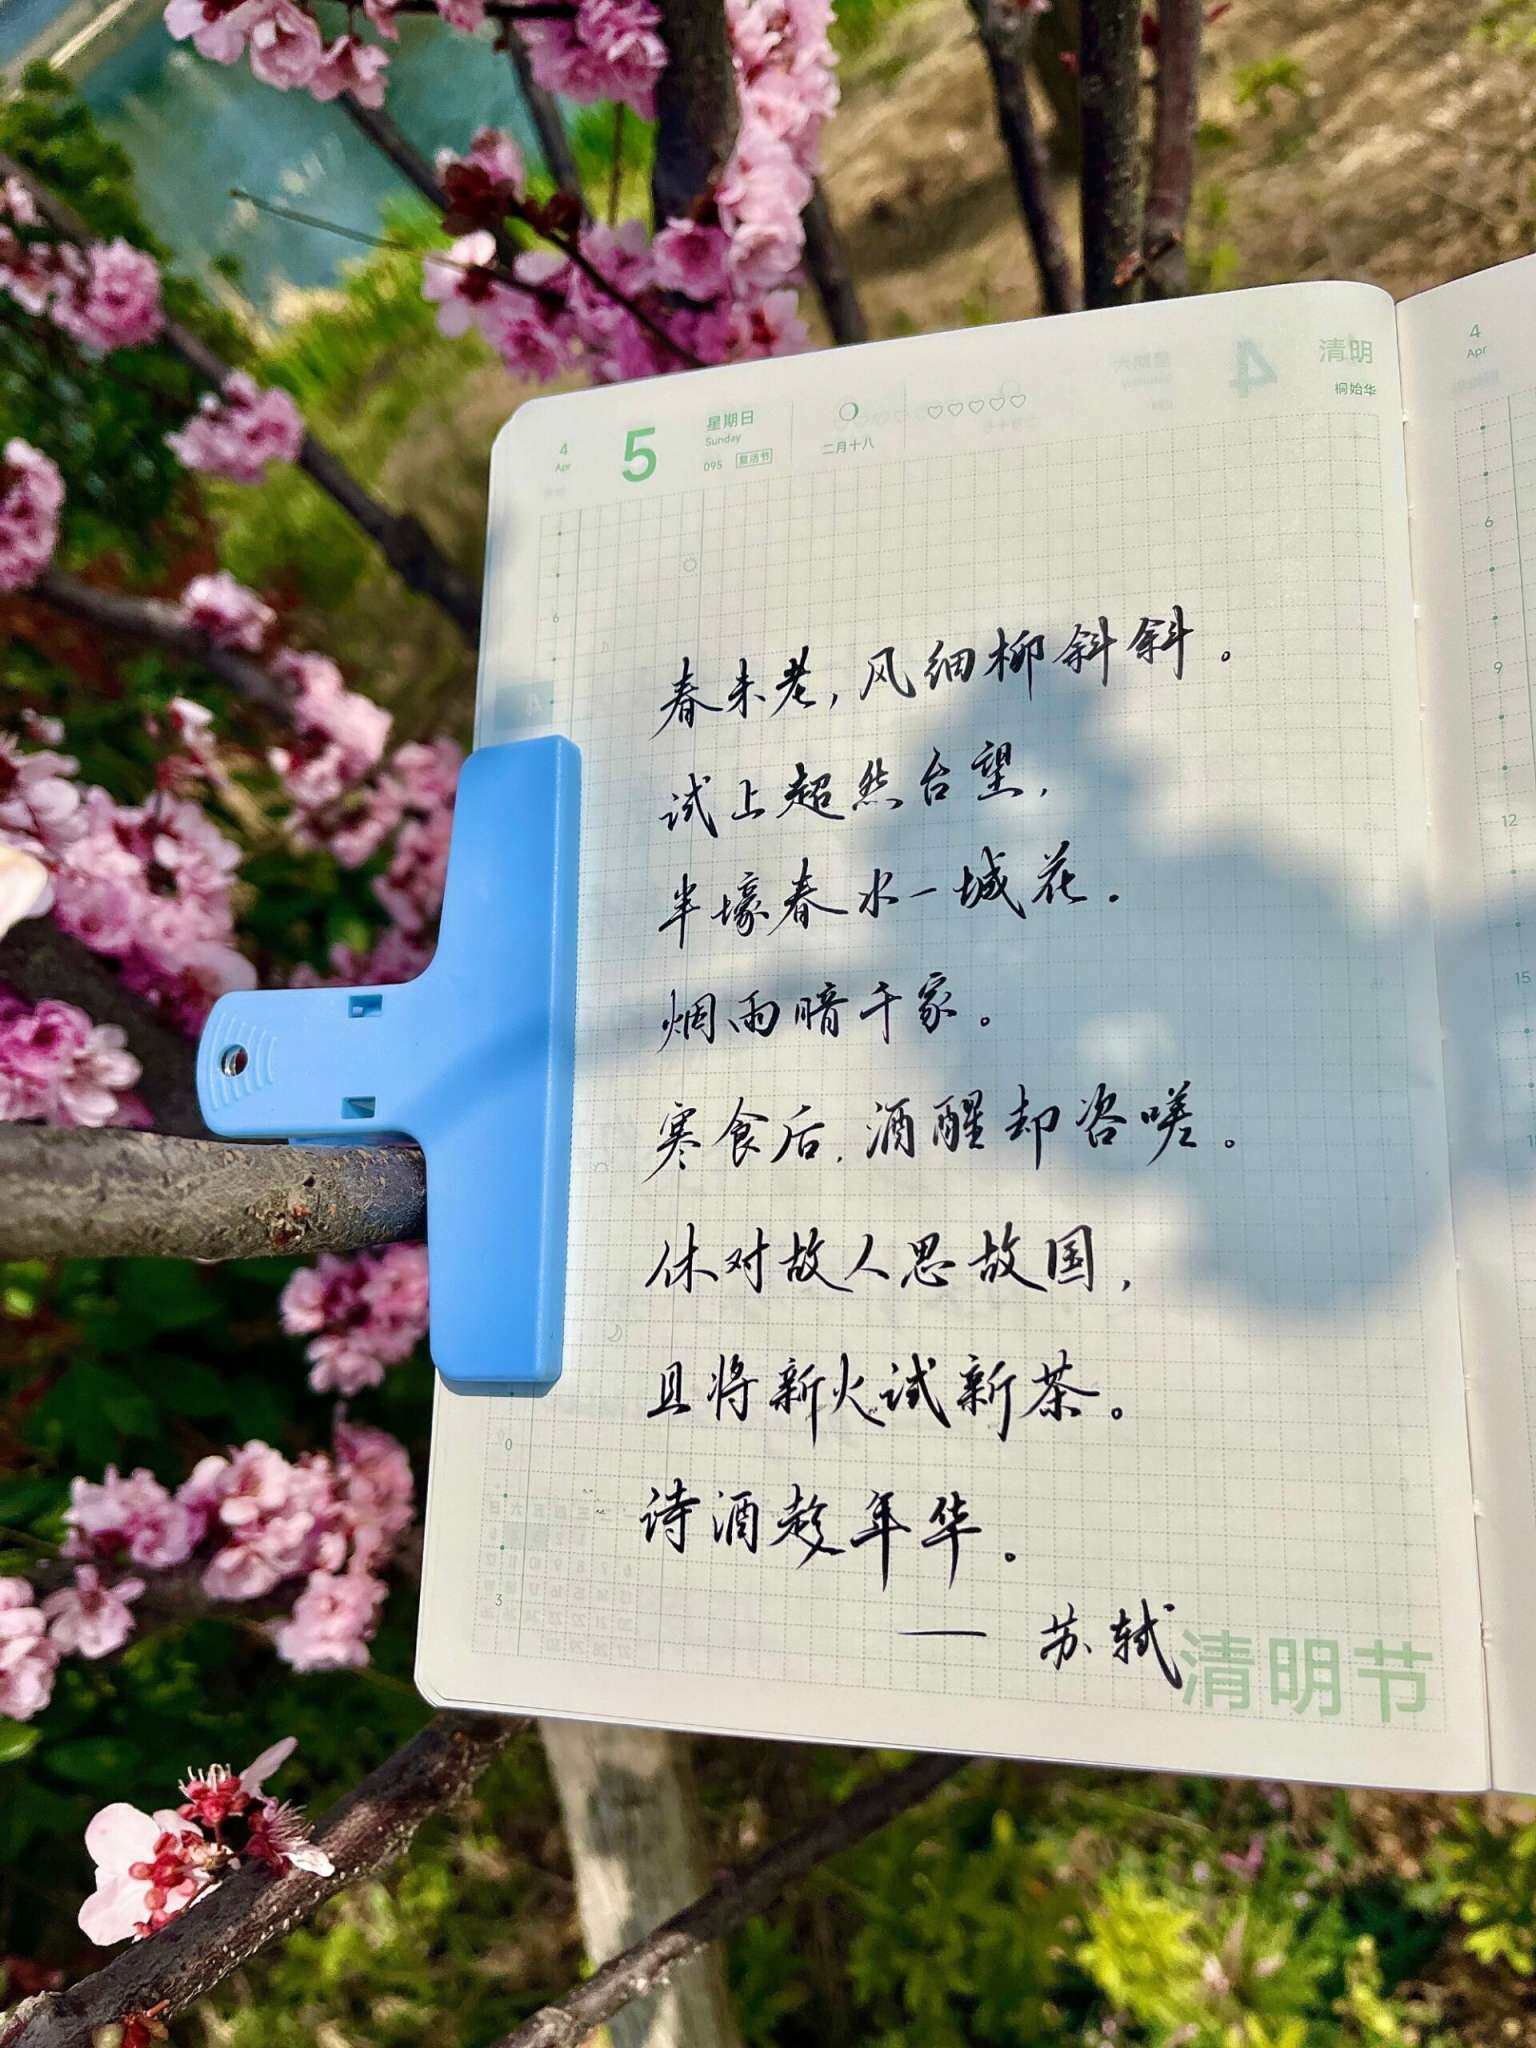 4
Apr
5
星期日
Sunday
095 复活节
二月十八
清明
桐始华
4
Apr
春未老，风细柳斜斜。
试上超然台望，
半壕春水一城花。
烟雨暗千家。
寒食后，酒醒却咨嗟。
休对故人思故国，
且将新火试新茶。
诗酒趁年华。
—— 苏轼
清明节
6
0
3
6
9
12
15